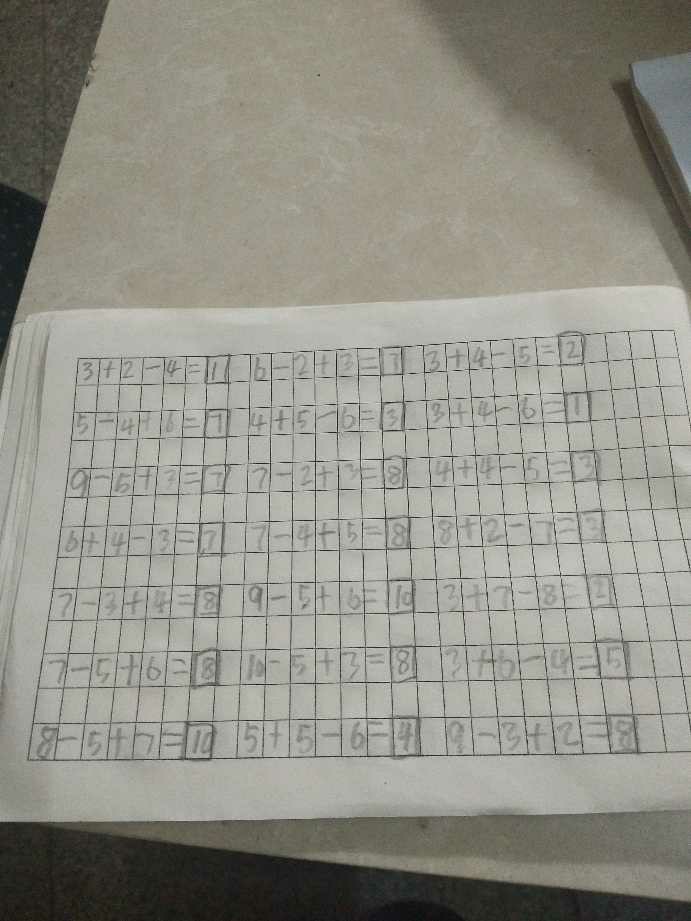 3+2-4=1 6-2+3=7 3+4-5=2
5-4+6=7 4+5-6=3 3+4-6=1
9-5+3=7 7-2+3=8 4+4-5=3
6+4-3=7 7-4+5=8 8+2-7=3
7-3+4=8 9-5+6=10 3+7-8=2
7-5+6=8 10-5+3=8 3+6-4=5
8-5+7=10 5+5-6=4 9-3+2=8